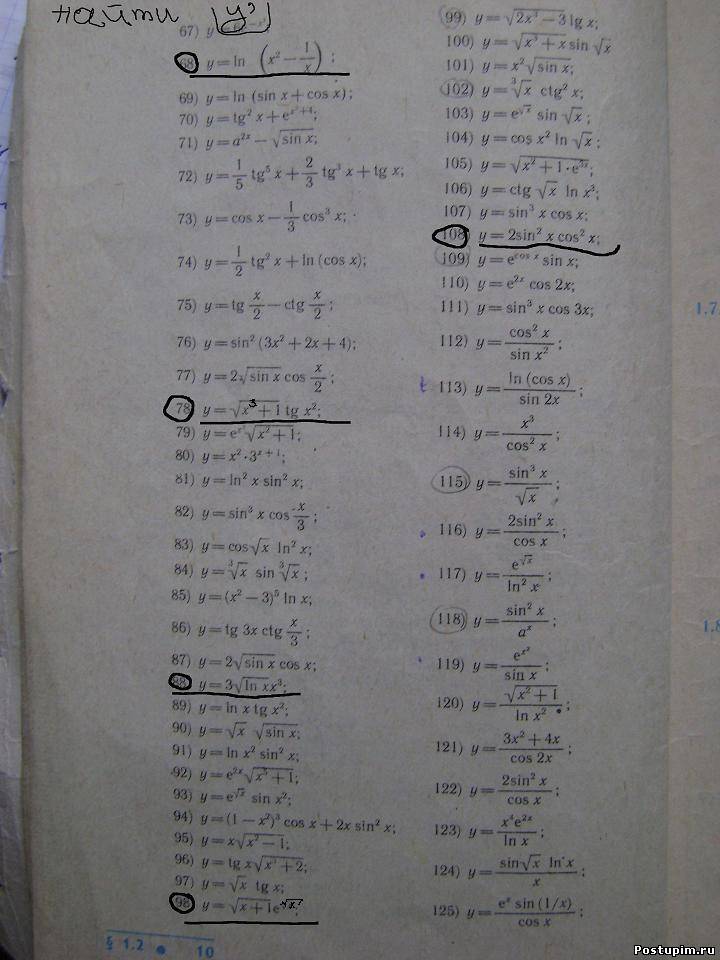 найти y'
67) y
68) y=ln (x² − 1/x);
69) y=ln (sin x+cos x);
70) y=tg² x+e^(x²+4);
71) y=a^(2x)−√(sin x);
72) y=1/5 tg⁵ x+2/3 tg³ x+tg x;
73) y=cos x−1/3 cos³ x;
74) y=1/2 tg² x+ln (cos x);
75) y=tg x/2−ctg x/2;
76) y=sin² (3x²+2x+4);
77) y=2√(sin x) cos x/2;
78) y=√(x³+1) tg x²;
79) y=e^(x²)√(x²+1);
80) y=x²·3^(x+1);
81) y=ln² x sin² x;
82) y=sin³ x cos x/3;
83) y=cos√x ln² x;
84) y=∛x sin ∛x;
85) y=(x²−3)⁵ ln x;
86) y=tg 3x ctg x/3;
87) y=2√(sin x) cos x;
88) y=3√(ln x)x³;
89) y=ln x tg x²;
90) y=√x √(sin x);
91) y=ln x² sin² x;
92) y=e^(2x)√(x³+1);
93) y=e^(√x) sin x²;
94) y=(1−x²)³ cos x+2x sin² x;
95) y=x√(x²−1);
96) y=tg x√(x³+2);
97) y=√x tg x;
98) y=√(x+1)e
§ 1.2 ● 10
99) y=√(2x³−3) lg x;
100) y=√(x³+x) sin √x
101) y=x²√(sin x);
102) y=∛x ctg² x;
103) y=e^(√x) sin √x;
104) y=cos x² ln √x;
105) y=√(x²+1·e^(3x));
106) y=ctg √x ln x³;
107) y=sin³ x cos x;
108) y=2sin² x cos² x;
109) y=e^(cos x) sin x;
110) y=e^(2x) cos 2x;
111) y=sin³ x cos 3x;
112) y=cos² x/sin x²;
113) y=ln (cos x)/sin 2x;
114) y=x³/cos² x;
115) y=sin³ x/√x;
116) y=2sin² x/cos x;
117) y=e^(√x)/ln² x;
118) y=sin² x/a^x;
119) y=e^(x²)/sin x;
120) y=√(x²+1)/ln x²;
121) y=3x²+4x/cos 2x;
122) y=2sin² x/cos x;
123) y=x⁴e^(2x)/ln x;
124) y=sin√x ln x/x;
125) y=e^x sin (1/x)/cos x;
1.7.
1.8
Postupim.ru